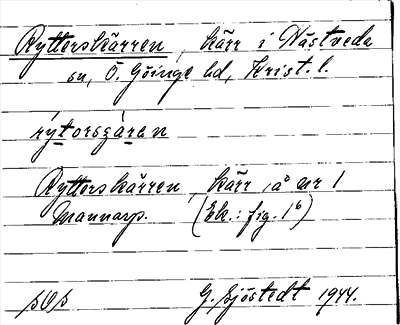 Rytterskärren, kärr i Hästveda
sn, Ö. Göinge hd, Krist. l.
rýtorsgáran
Rytterskärren, kärr, å nr 1
Mannarp. (Ek.: fig. 1⁶)
G. Sjöstedt 1944.